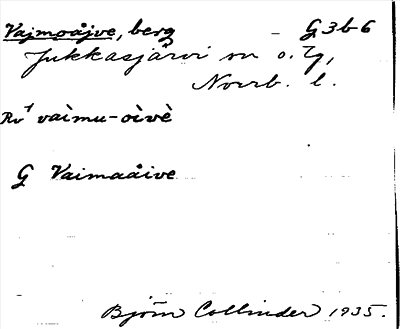 Vajmoåjve, berg G 3b-6
Jukkasjärvi sn o. tg,
Norrb. l.
Rv⁴ vaìmu-oìvè
G Vaimaåive
Björn Collinder 1935.